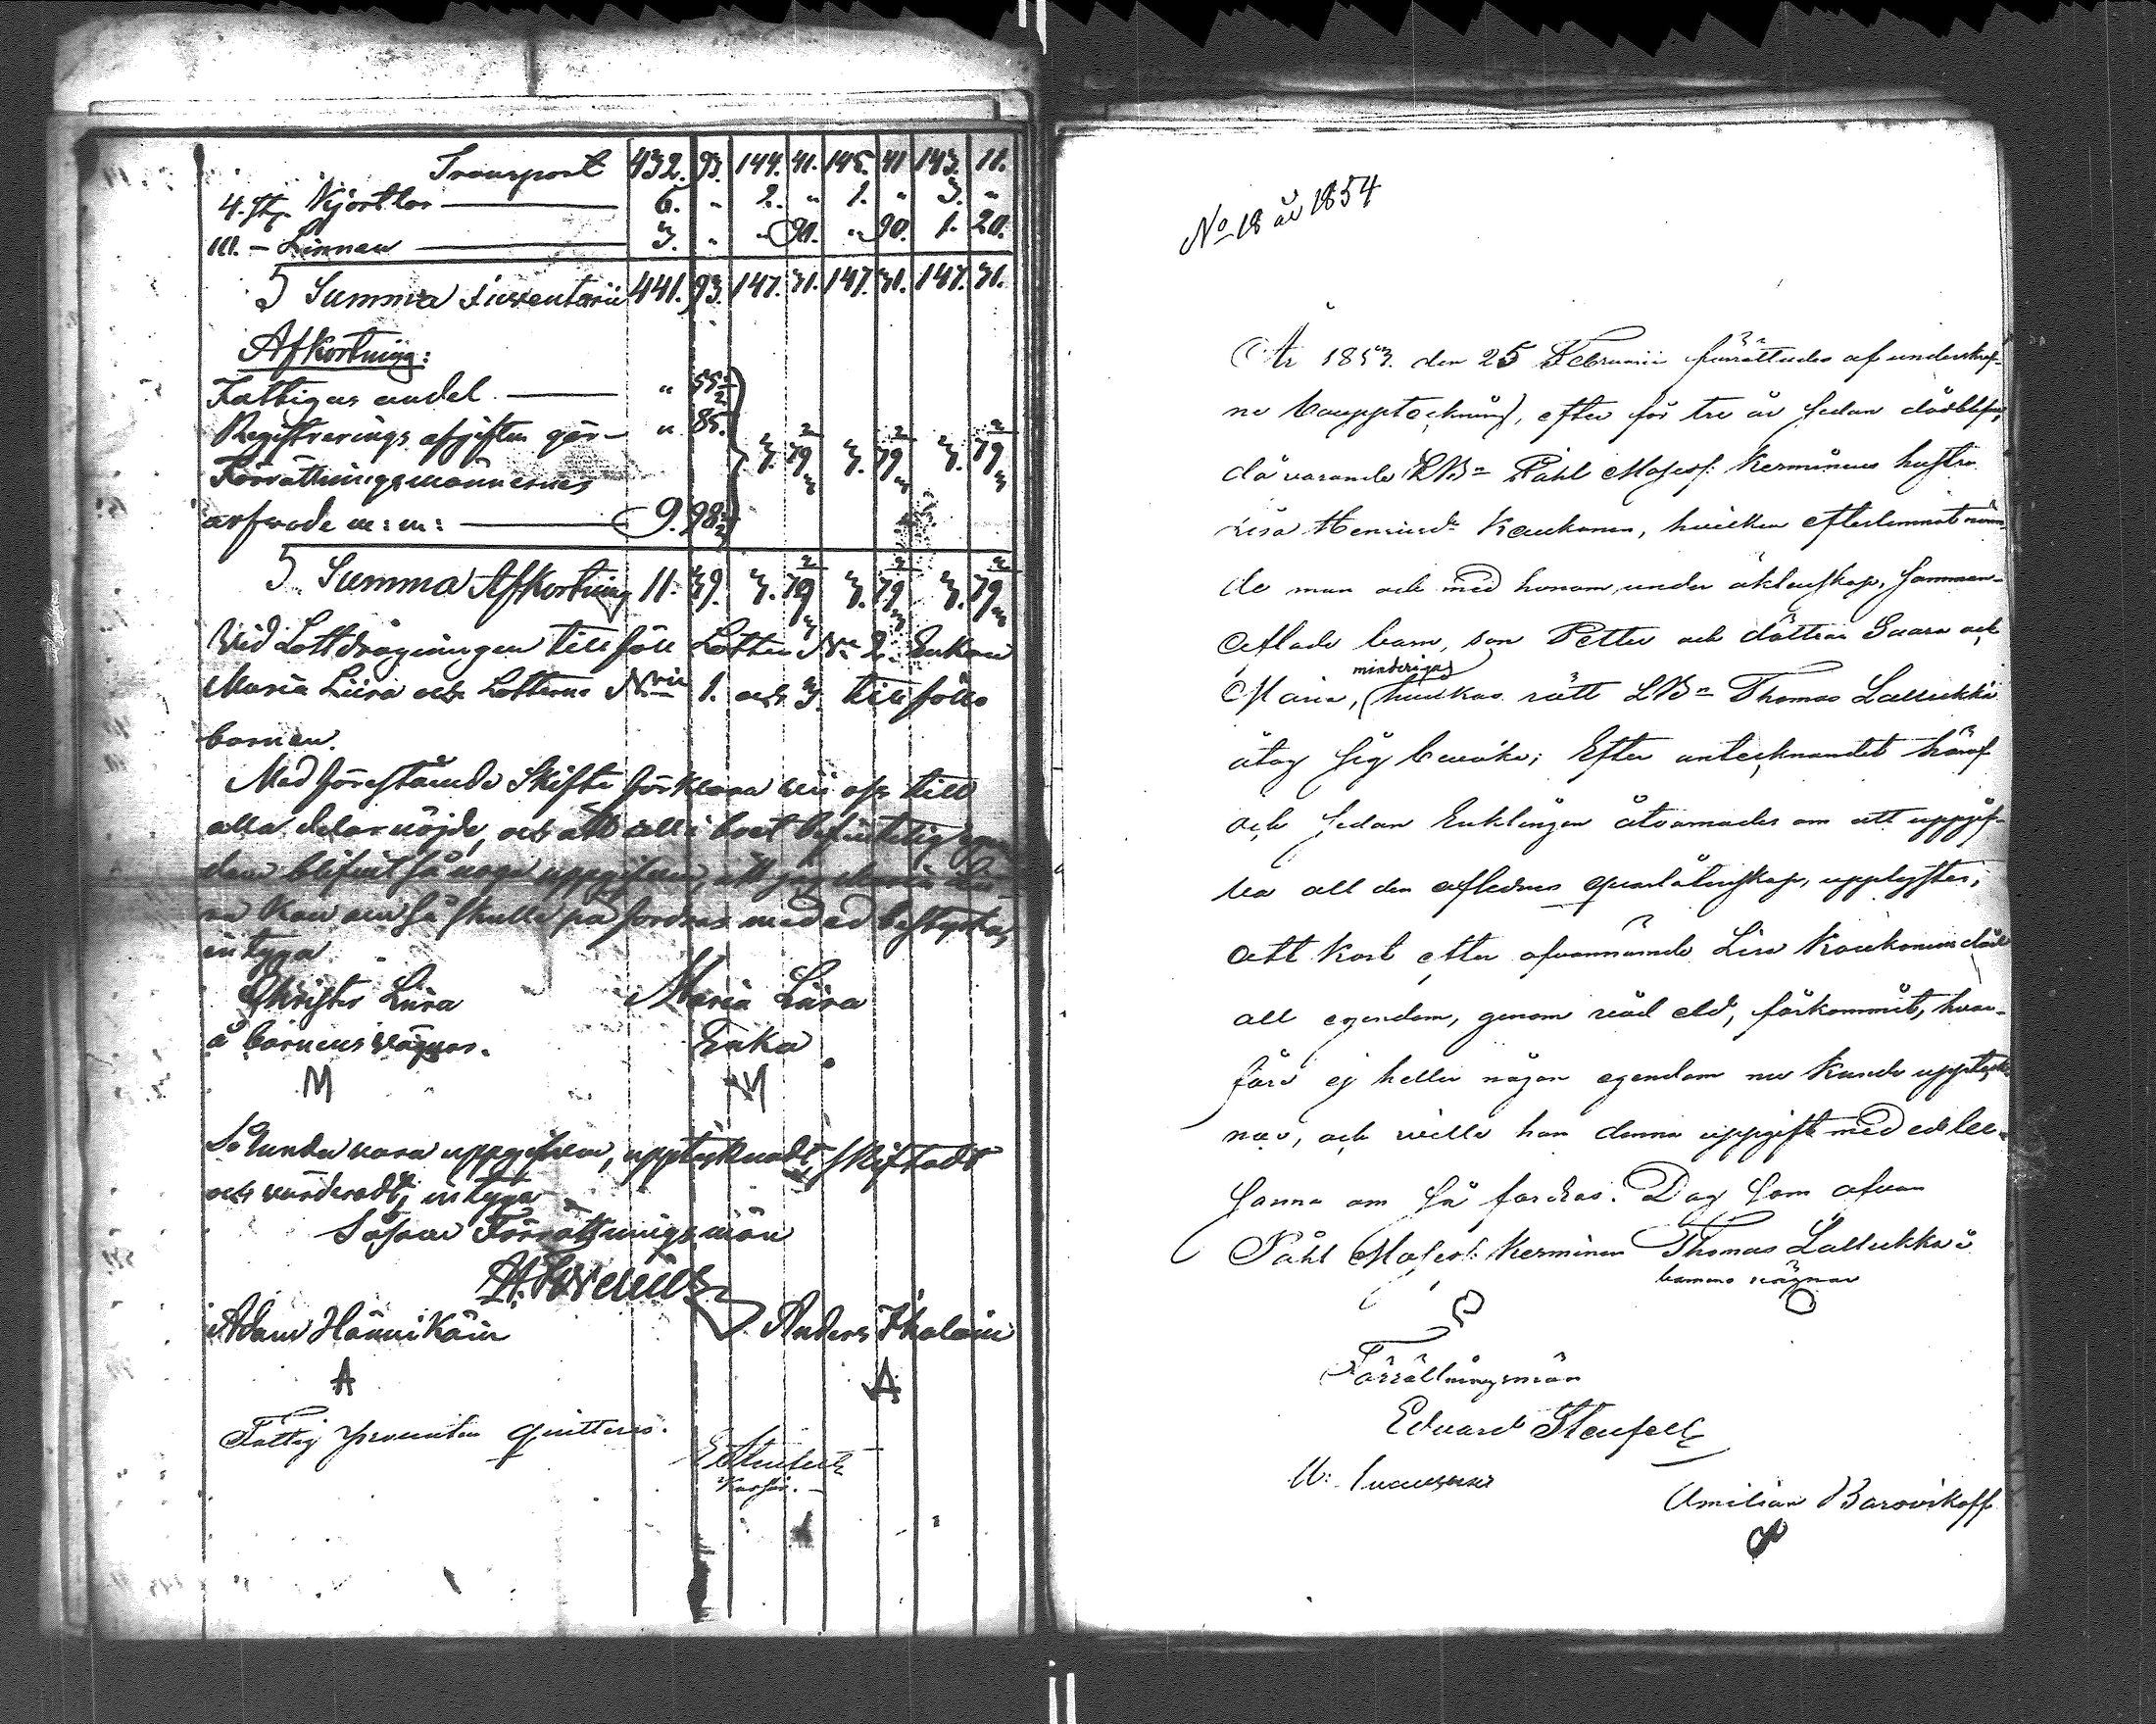 Transport 432. 93. 144. 41. 145. 41 143. 11.
4. st. Kjortlar 6. " 2. " 1. " 3. "
10. - Linnen 3. " " 90. " 90. 1. 20.
S Summa Inventarii 441. 93. 147. 31. 147. 31. 147. 31.
Afkortning:
Fattigas andel "
Registrerings afgiften gör " 85.
Förrättningsmännernes
arfvode m: m: 9. 98½
S Summa Afkortning 11. 39. 3. 79 2/3 3. 79 2/3 3. 79 2/3
Vid Lottdragningen tillföll Lotten No 2. Enkan
Maria Liira och Lotterne Nris 1. och 3. tillföllo
barnen.
Med förestående Skifte förklara vii oss till
alla delar nöjde, och att all i boet befintelig egen
dom blifvit så noga uppgifven, att jag
kan om så skulle på fordras med ed bestyrka,
intyga
Christer Liira Maria Liira
å barnens vägnar. Enka
M M
Sålunda vara uppgifvit, upptecknadt, skiftadt
och värderadt, intyga
Såsom Förrättningsmän
Adam Hännikäin Anders Ihalain
A A
Fattig procenten quitteras.
Kassör.
No 18 år 1854
År 1853. den 25 Februarii förrättades af underskref-
ne bouppteckning, efter för tre år sedan dödblefne,
dåvarande LBn Påhl Mosess. Kerminens hustru
Lisa Henricsdr Kaukonen, hvilken efterlemnat nämn-
de man och med honom under äktenskap, samman-
aflade barn, son Petter och döttrar Saara och
minderigas
Maria, hvilkas rätt LBn Thomas Lallukka
åtog sig bevaka; Efter antecknandet häraf
och sedan Enklingen åtvarnades om att uppgif-
va all den aflednes qvarlåtenskap, upplystes,
att kort efter ofvannämnde Lisa Kaukonens död
all egendom, genom våd eld, förkommit, hvar-
före ej heller någon egendom nu kunde uppteck-
nas, och ville han denna uppgift med ed be-
sanna om så fordras. Dag som ofvan
Påhl Mosess. Kerminen Thomas Lallukka å
barnens vägnar
Förrättningsmän
Eduard Stenfelt
Amilian Barovikoff